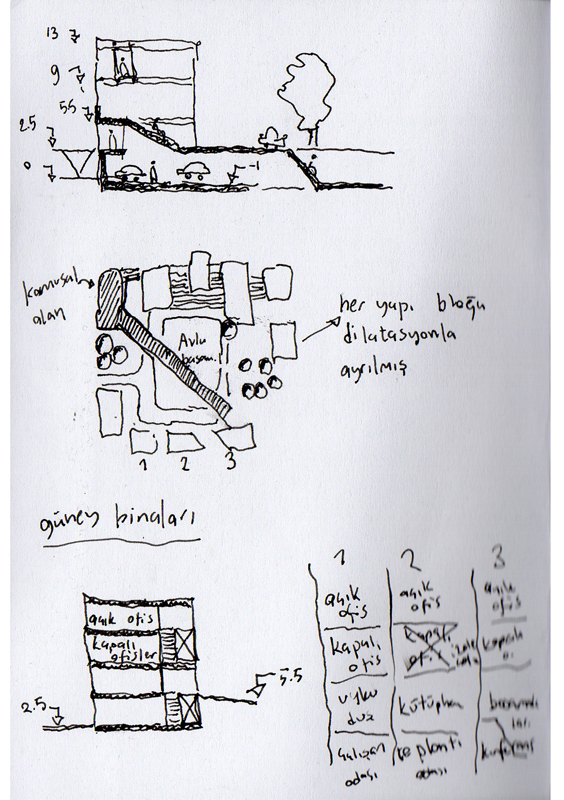 13
9
5.5
2.5
0
-1
kamusal
alan
Avlu
her yapı bloğu
dilatasyonla
ayrılmış
1 2 3
güney binaları
açık ofis
kapalı
ofisler
2.5
5.5
1 2 3
açık
ofis
açık
ofis
açık
ofis
kapalı
ofis
kapalı
ofis
kütüphan
çalışan
odası
toplantı
odası